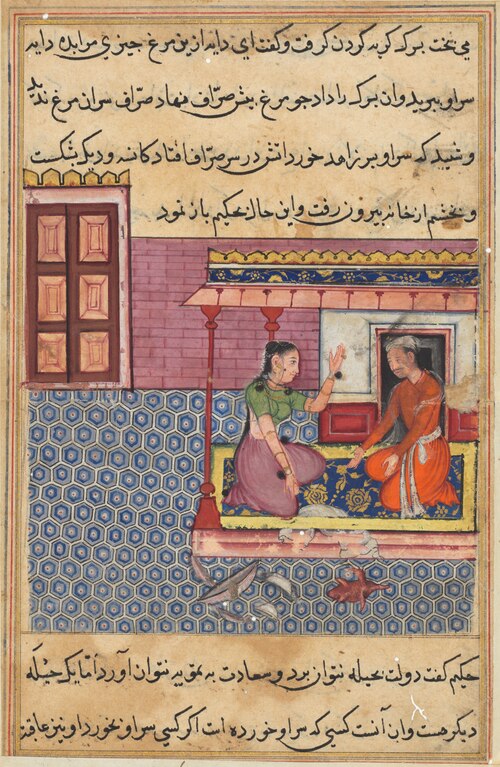 می پخت برکه کریه کردن کرفت و کفت ای دایه ازین مرغ چیزی مرا بده دایه
سر او ببرید و ان برکه را داد چو مرغ پیش صراف نهاد صراف سر ان مرغ ندید
و شنید که سر او بر زامد خورد اتش در سر صراف افتاد کاسه و دیک بشکست
و بخشم از خانه بیرون رفت و این حال بحکیم باز نمود
حکیم کفت دولت بحیله نتوان برد و سعادت به نتوان آورد اما یک حیله
دیکر هست و ان آنست کسی که سر او خورده است اکر کسی سر او بخورد او نیز عاقبت